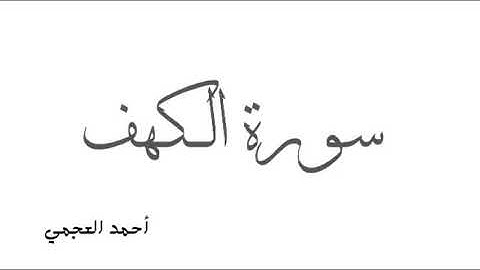 سورة الكهف
أحمد العجمي